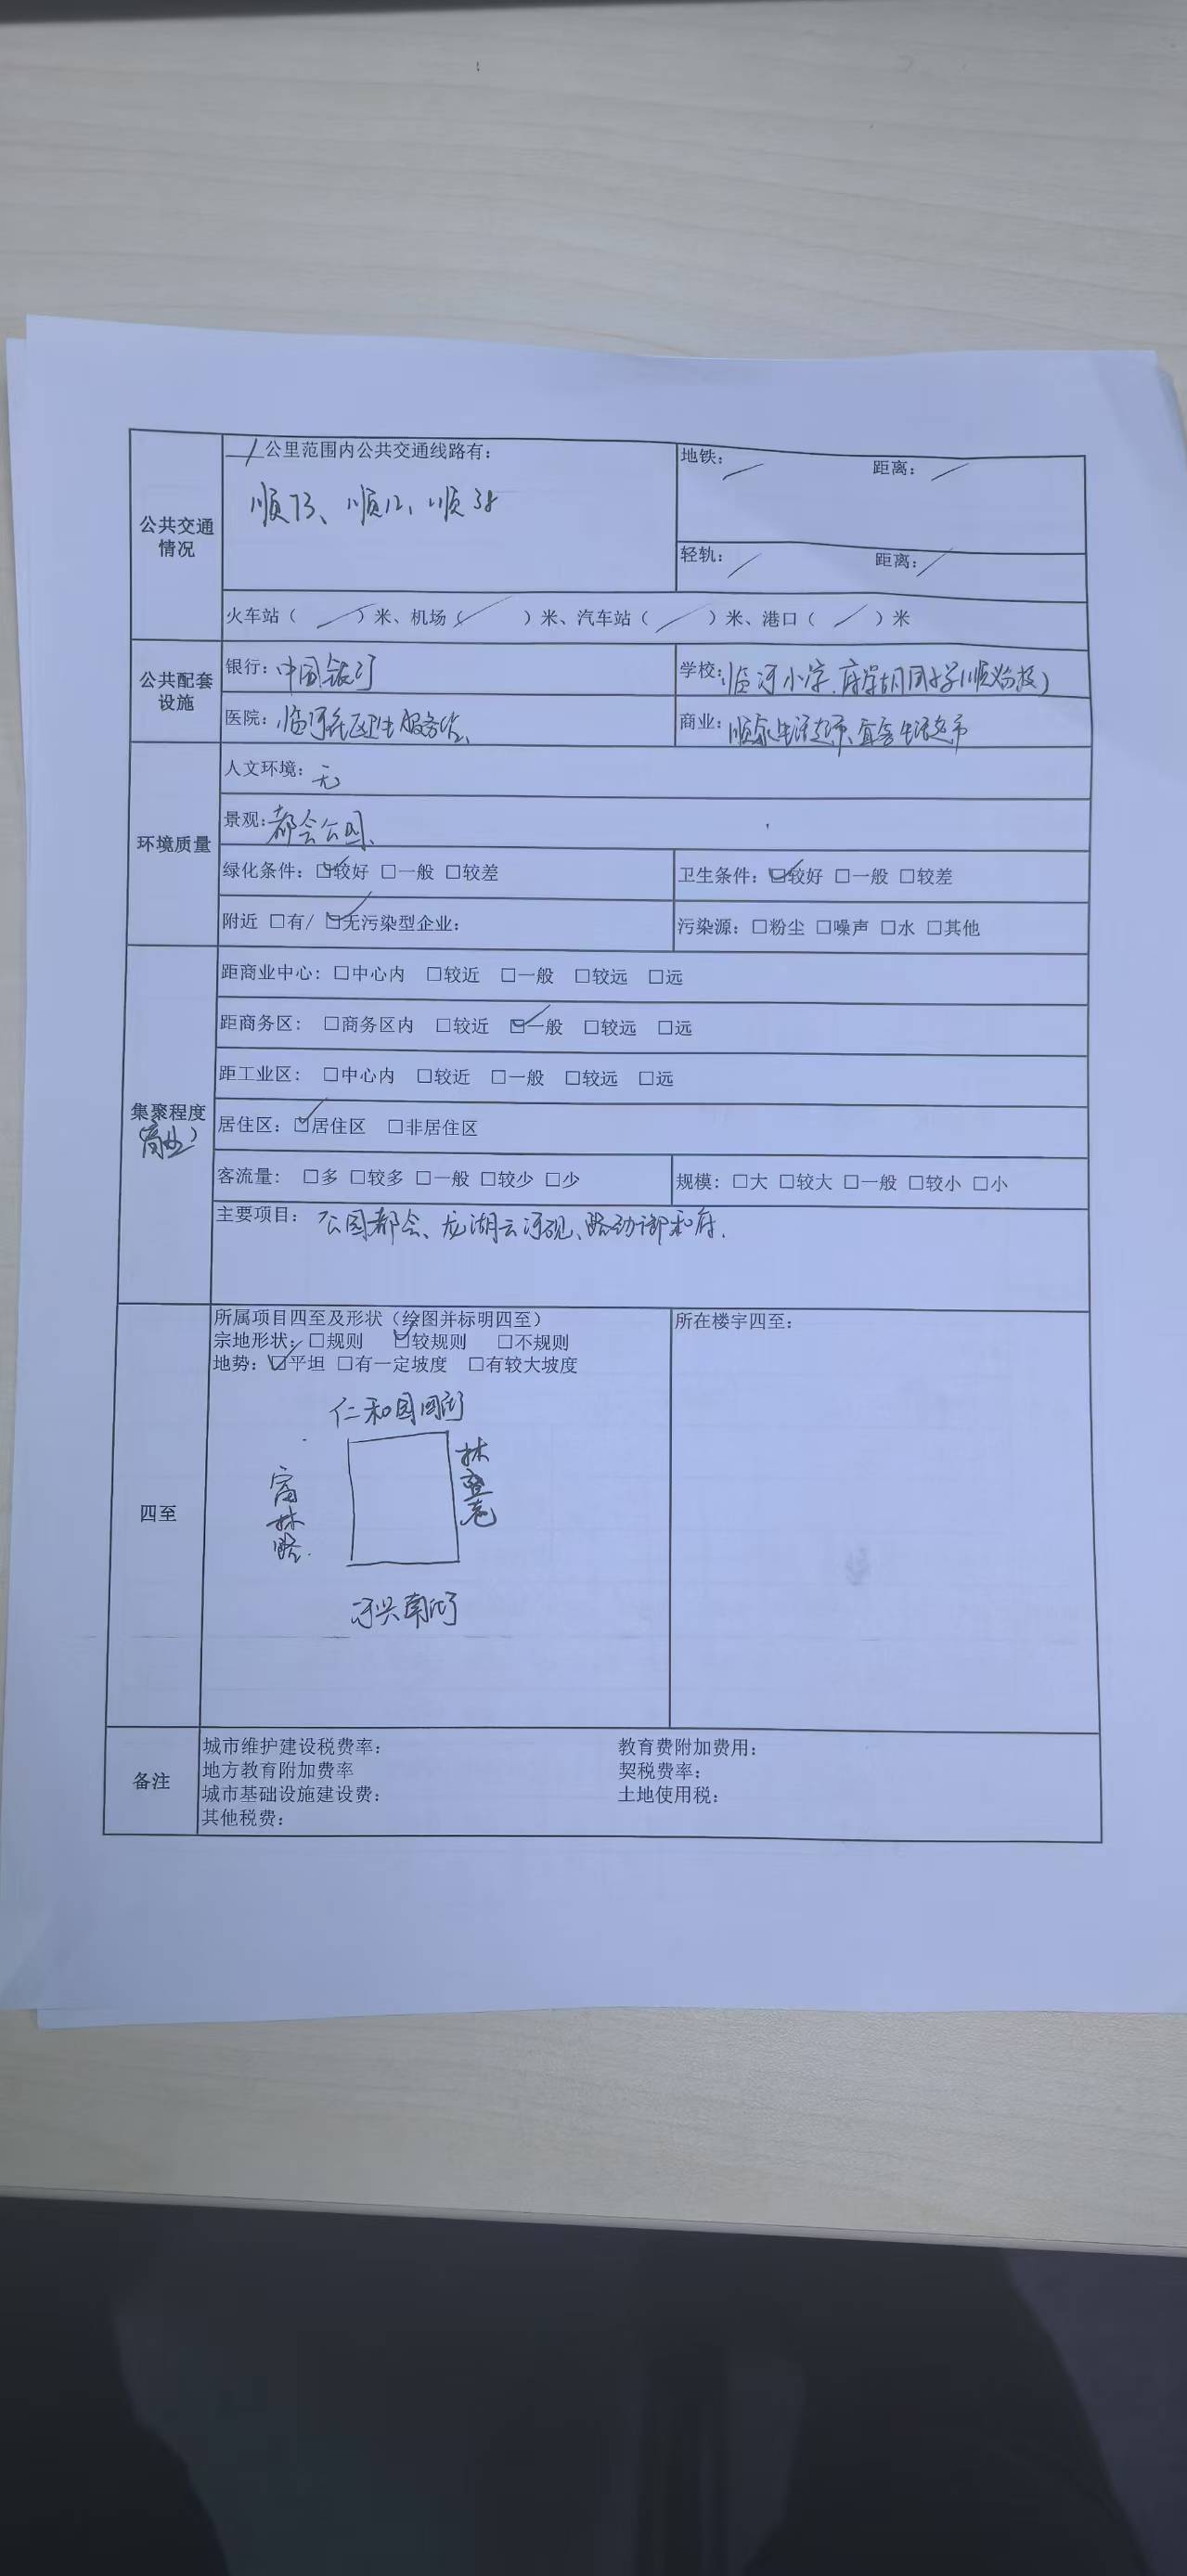 公共交通情况
1公里范围内公共交通线路有：
顺73、顺12、顺38
地铁： / 距离： /
轻轨： / 距离： /
火车站（ / ）米、机场（ / ）米、汽车站（ / ）米、港口（ / ）米
公共配套设施
银行：中国银行
学校：临河小学、府学胡同小学(顺义分校)
医院：临河社区卫生服务站、
商业：顺家生活超市、宜客生活超市
环境质量
人文环境：无
景观：都会公园、
绿化条件：☑较好 □一般 □较差
卫生条件：☑较好 □一般 □较差
附近 □有/ ☑无污染型企业：
污染源：□粉尘 □噪声 □水 □其他
集聚程度
（商业）
距商业中心：□中心内 □较近 □一般 □较远 □远
距商务区： □商务区内 □较近 ☑一般 □较远 □远
距工业区： □中心内 □较近 □一般 □较远 □远
居住区：☑居住区 □非居住区
客流量： □多 □较多 □一般 □较少 □少
规模：□大 □较大 □一般 □较小 □小
主要项目： 公园都会、龙湖云河砚、路劲御和府.
四至
所属项目四至及形状（绘图并标明四至）
宗地形状：□规则 ☑较规则 □不规则
地势：☑平坦 □有一定坡度 □有较大坡度
仁和园四街
富林路
林
河兴南街
所在楼宇四至：
备注
城市维护建设税费率：
教育费附加费用：
地方教育附加费率
契税费率：
城市基础设施建设费：
土地使用税：
其他税费：